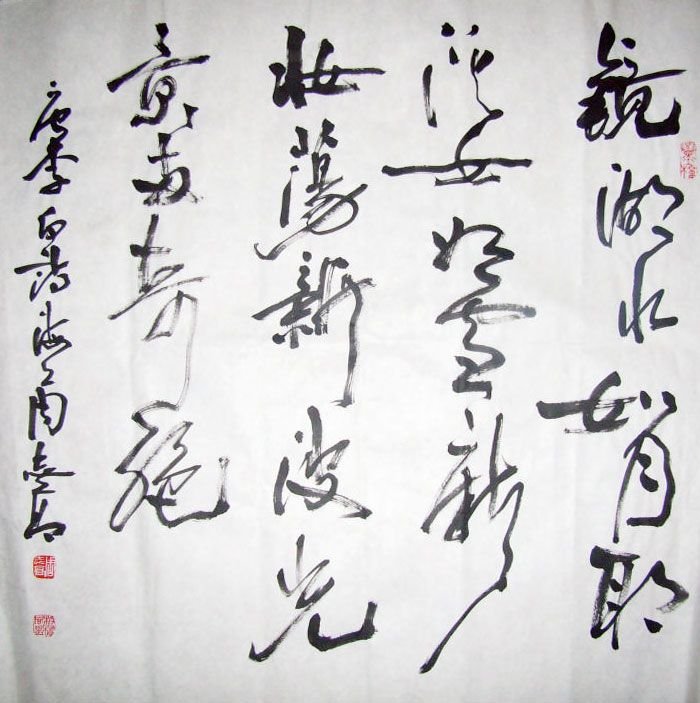 鏡湖水如月耶
溪女如雪新
妝蕩新波光
景兩奇絕
唐李白詩